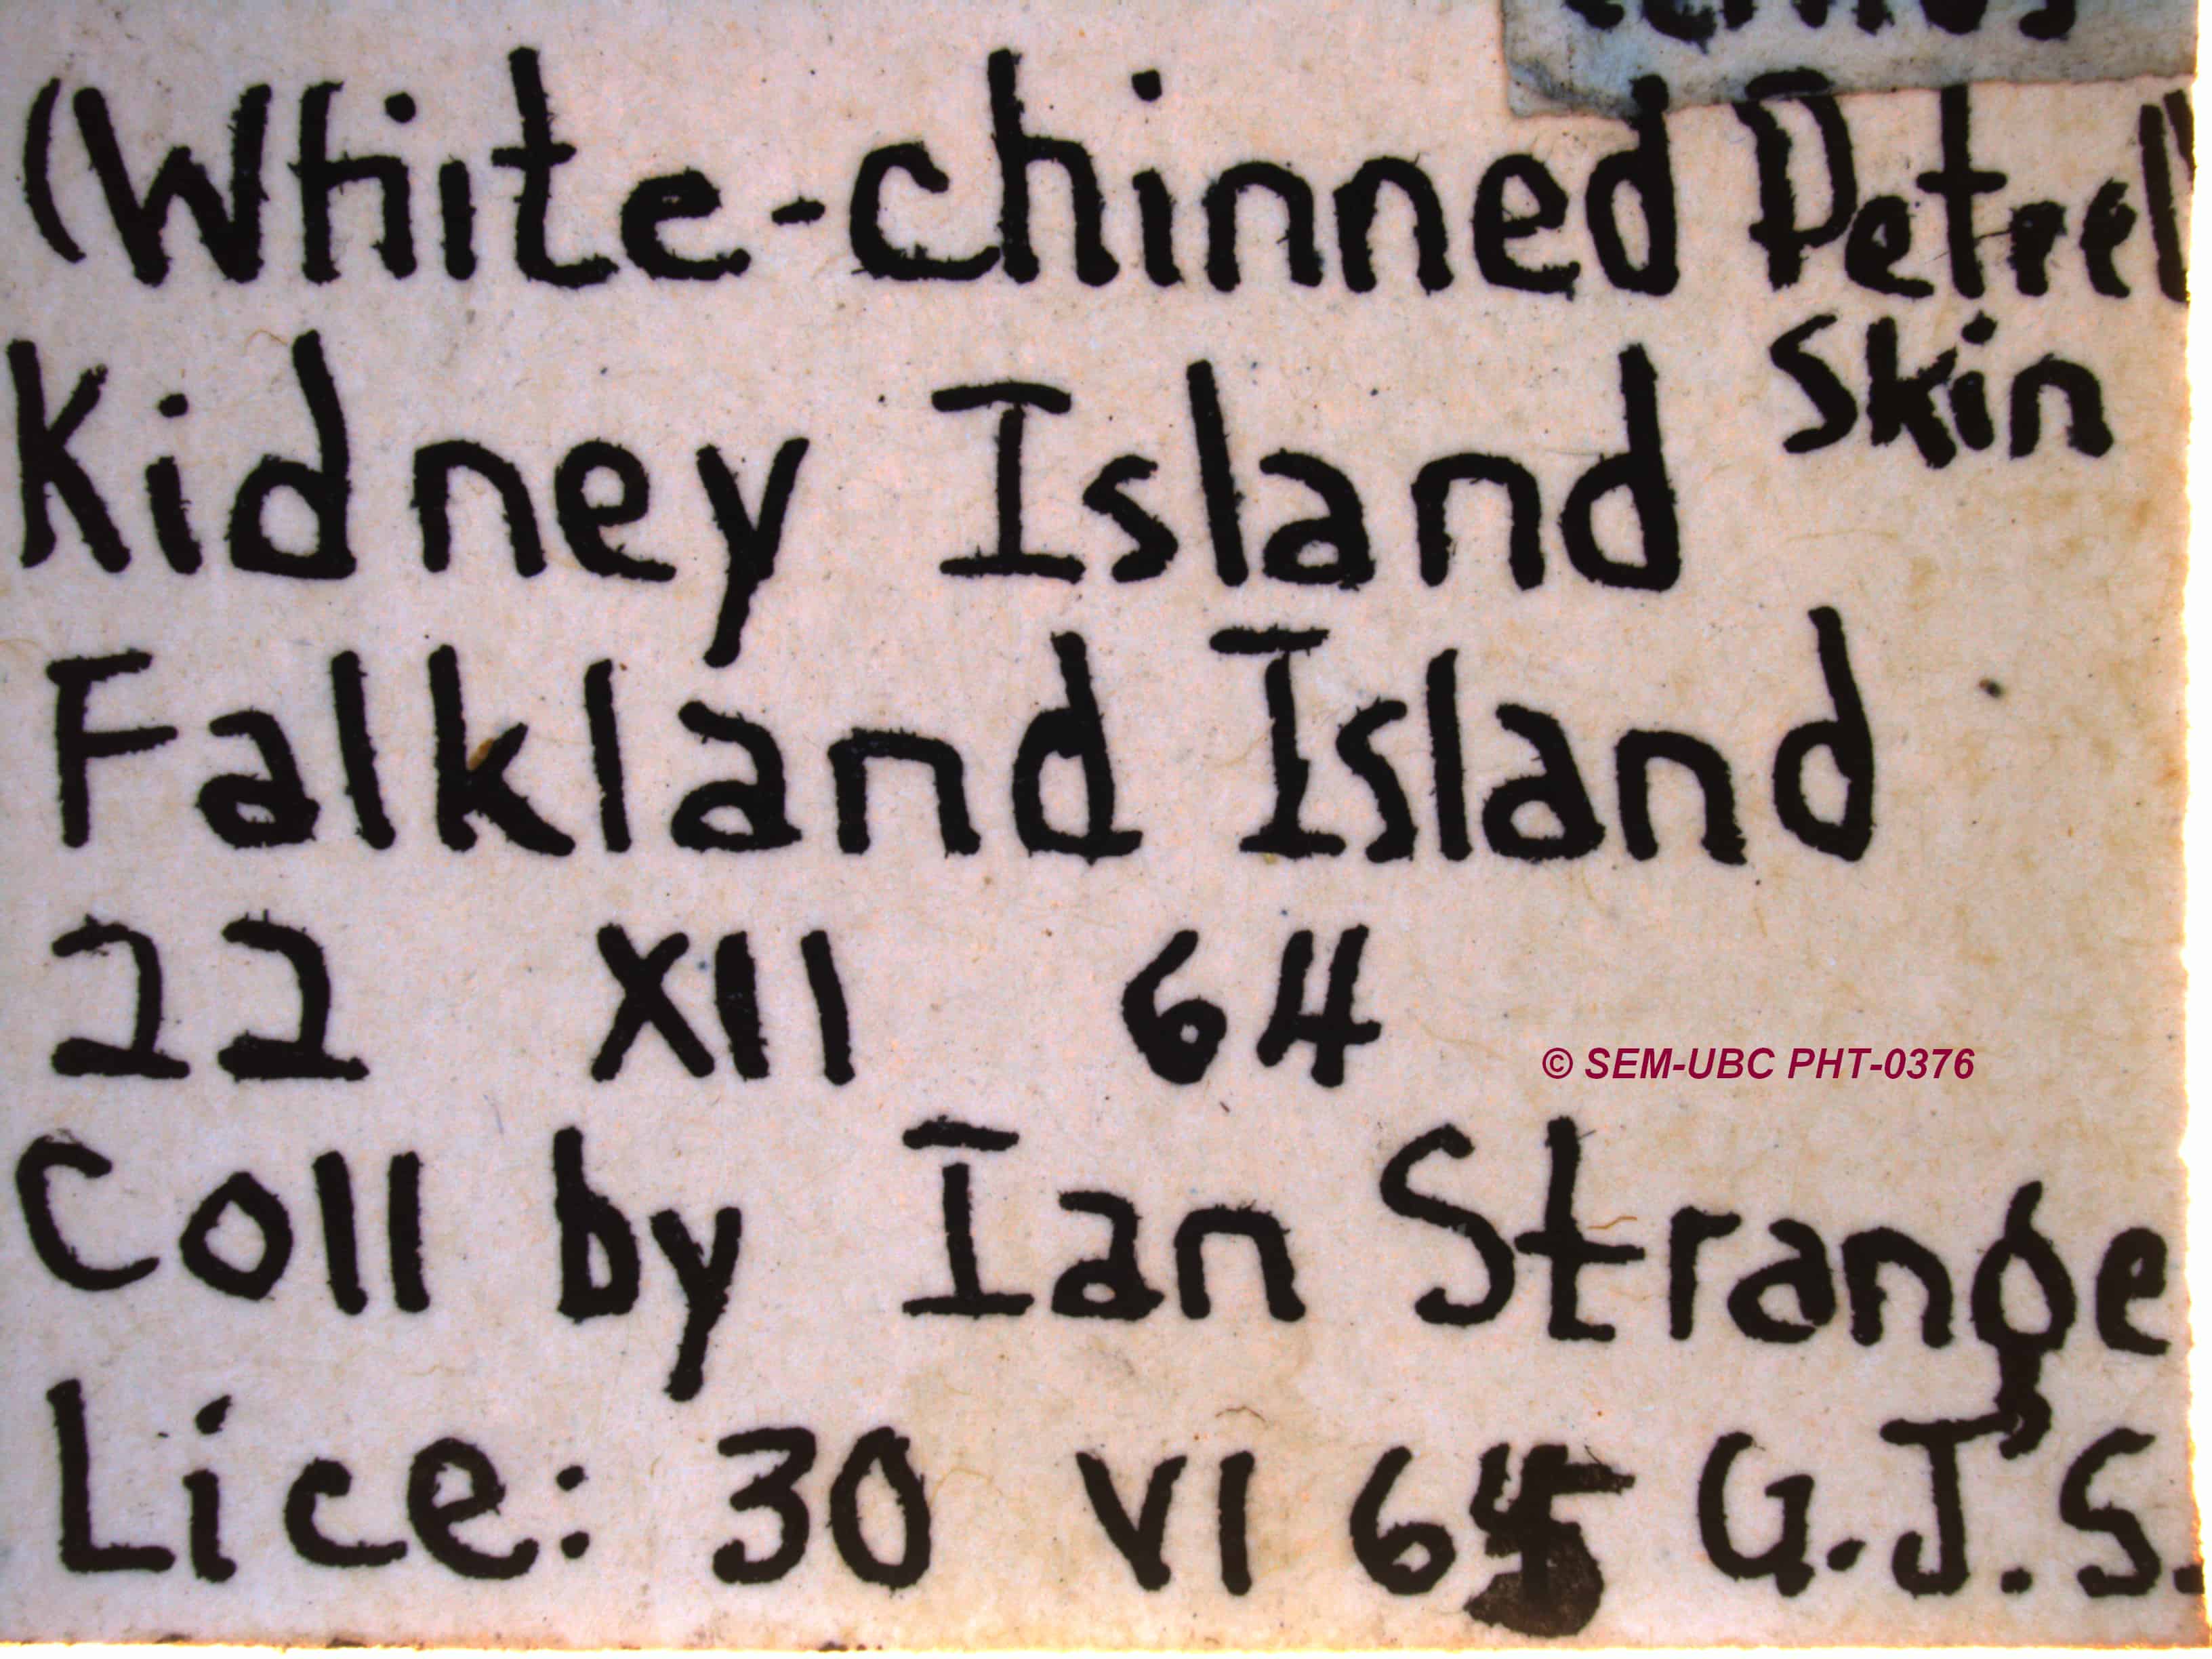 (White-chinned Petrel)
Skin
Kidney Island
Falkland Island
22 XII 64
© SEM-UBC PHT-0376
Coll by Ian Strange
Lice: 30 VI 65 G.J.S.